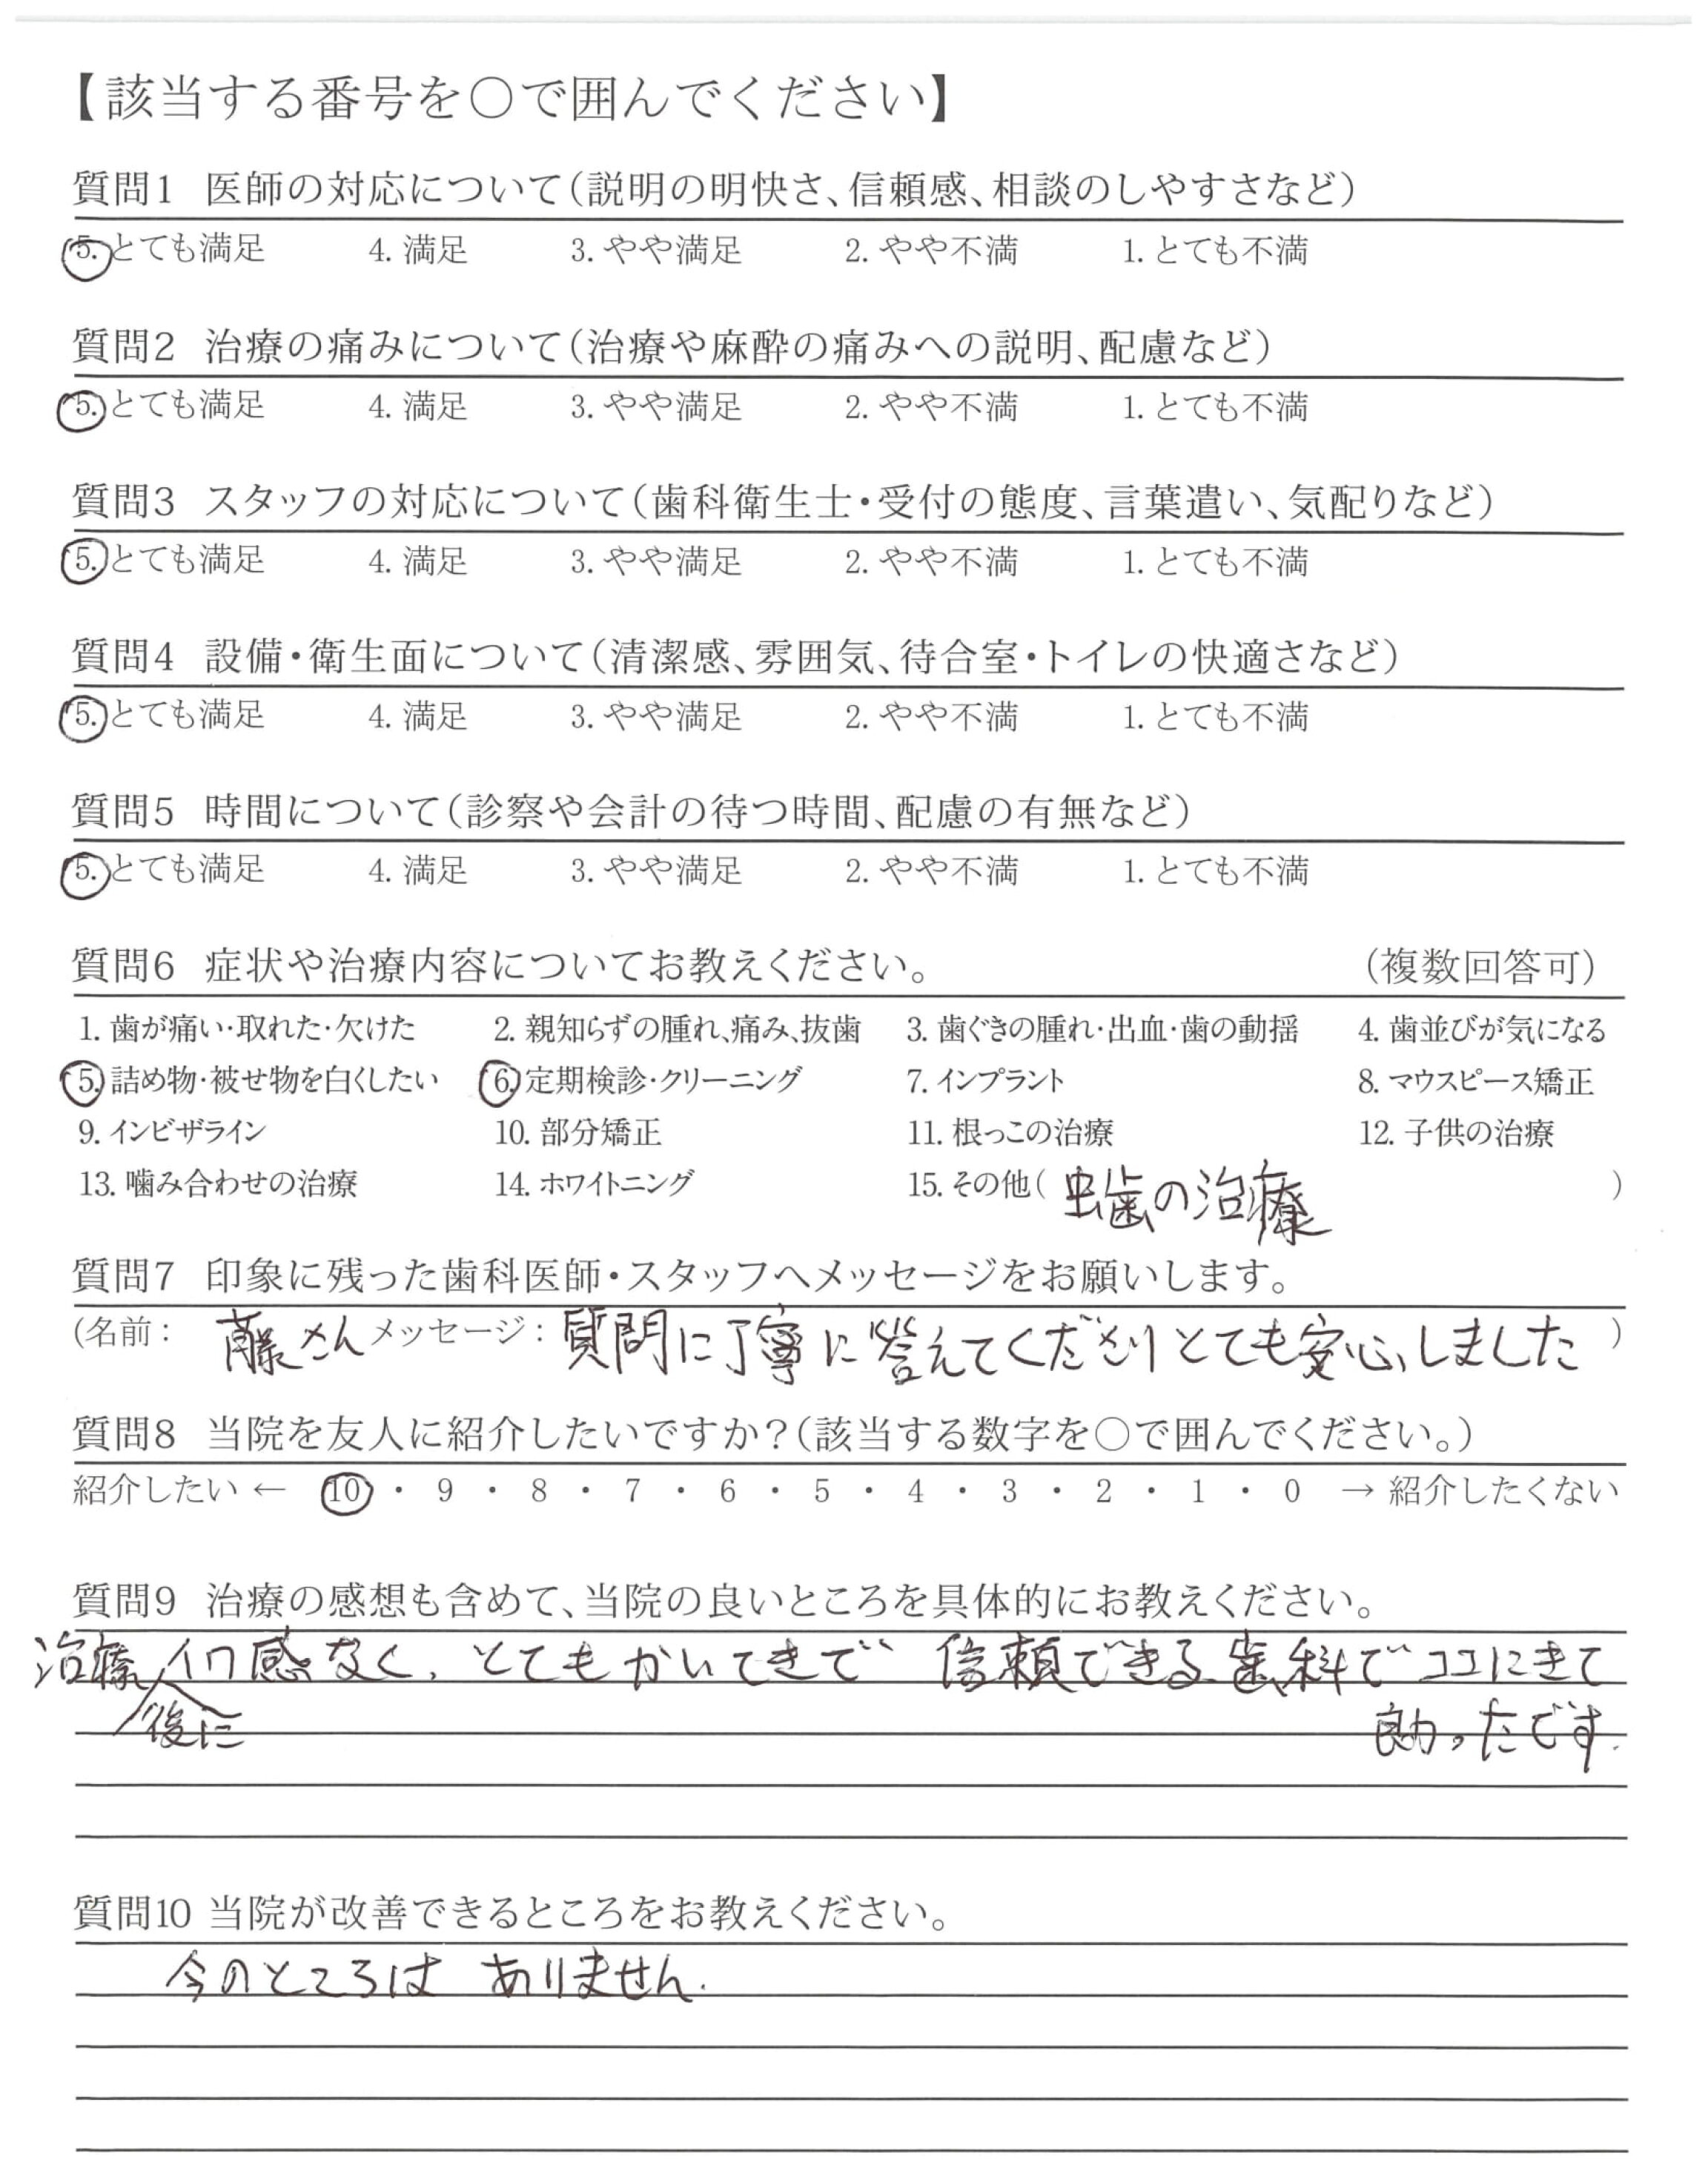 【該当する番号を○で囲んでください】
質問1 医師の対応について（説明の明快さ、信頼感、相談のしやすさなど）
5. とても満足 4. 満足 3. やや満足 2. やや不満 1. とても不満
質問2 治療の痛みについて（治療や麻酔の痛みへの説明、配慮など）
5. とても満足 4. 満足 3. やや満足 2. やや不満 1. とても不満
質問3 スタッフの対応について（歯科衛生士・受付の態度、言葉遣い、気配りなど）
5. とても満足 4. 満足 3. やや満足 2. やや不満 1. とても不満
質問4 設備・衛生面について（清潔感、雰囲気、待合室・トイレの快適さなど）
5. とても満足 4. 満足 3. やや満足 2. やや不満 1. とても不満
質問5 時間について（診察や会計の待つ時間、配慮の有無など）
5. とても満足 4. 満足 3. やや満足 2. やや不満 1. とても不満
質問6 症状や治療内容についてお教えください。 （複数回答可）
1. 歯が痛い・取れた・欠けた 2. 親知らずの腫れ、痛み、抜歯 3. 歯ぐきの腫れ・出血・歯の動揺 4. 歯並びが気になる
5. 詰め物・被せ物を白くしたい 6. 定期検診・クリーニング 7. インプラント 8. マウスピース矯正
9. インビザライン 10. 部分矯正 11. 根っこの治療 12. 子供の治療
13. 噛み合わせの治療 14. ホワイトニング 15. その他（虫歯の治療）
質問7 印象に残った歯科医師・スタッフへメッセージをお願いします。
（名前： 藤さん メッセージ：質問に丁寧に答えてくださりとても安心しました）
質問8 当院を友人に紹介したいですか？（該当する数字を○で囲んでください。）
紹介したい ← 10 ・ 9 ・ 8 ・ 7 ・ 6 ・ 5 ・ 4 ・ 3 ・ 2 ・ 1 ・ 0 → 紹介したくない
質問9 治療の感想も含めて、当院の良いところを具体的にお教えください。
治療後にイワ感なく、とてもかいてきで 信頼できる歯科でココにきて
良かったです.
質問10 当院が改善できるところをお教えください。
今のところは ありません.